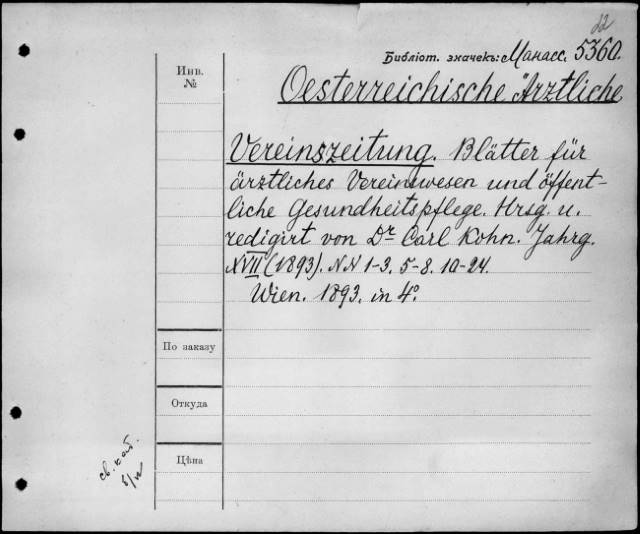 22
Библіот. значекъ: Манасс. 5360.
Инв.
№
Oesterreichische Ärztliche
Vereinszeitung. Blätter für
ärztliches Vereinswesen und öffent-
liche Gesundheitspflege. Hrsg. u.
redigirt von Dr Carl Kohn. Jahrg.
XVII (1893). NN 1-3. 5-8. 10-24.
Wien. 1893. in 4°.
По заказу
Откуда
Цѣна